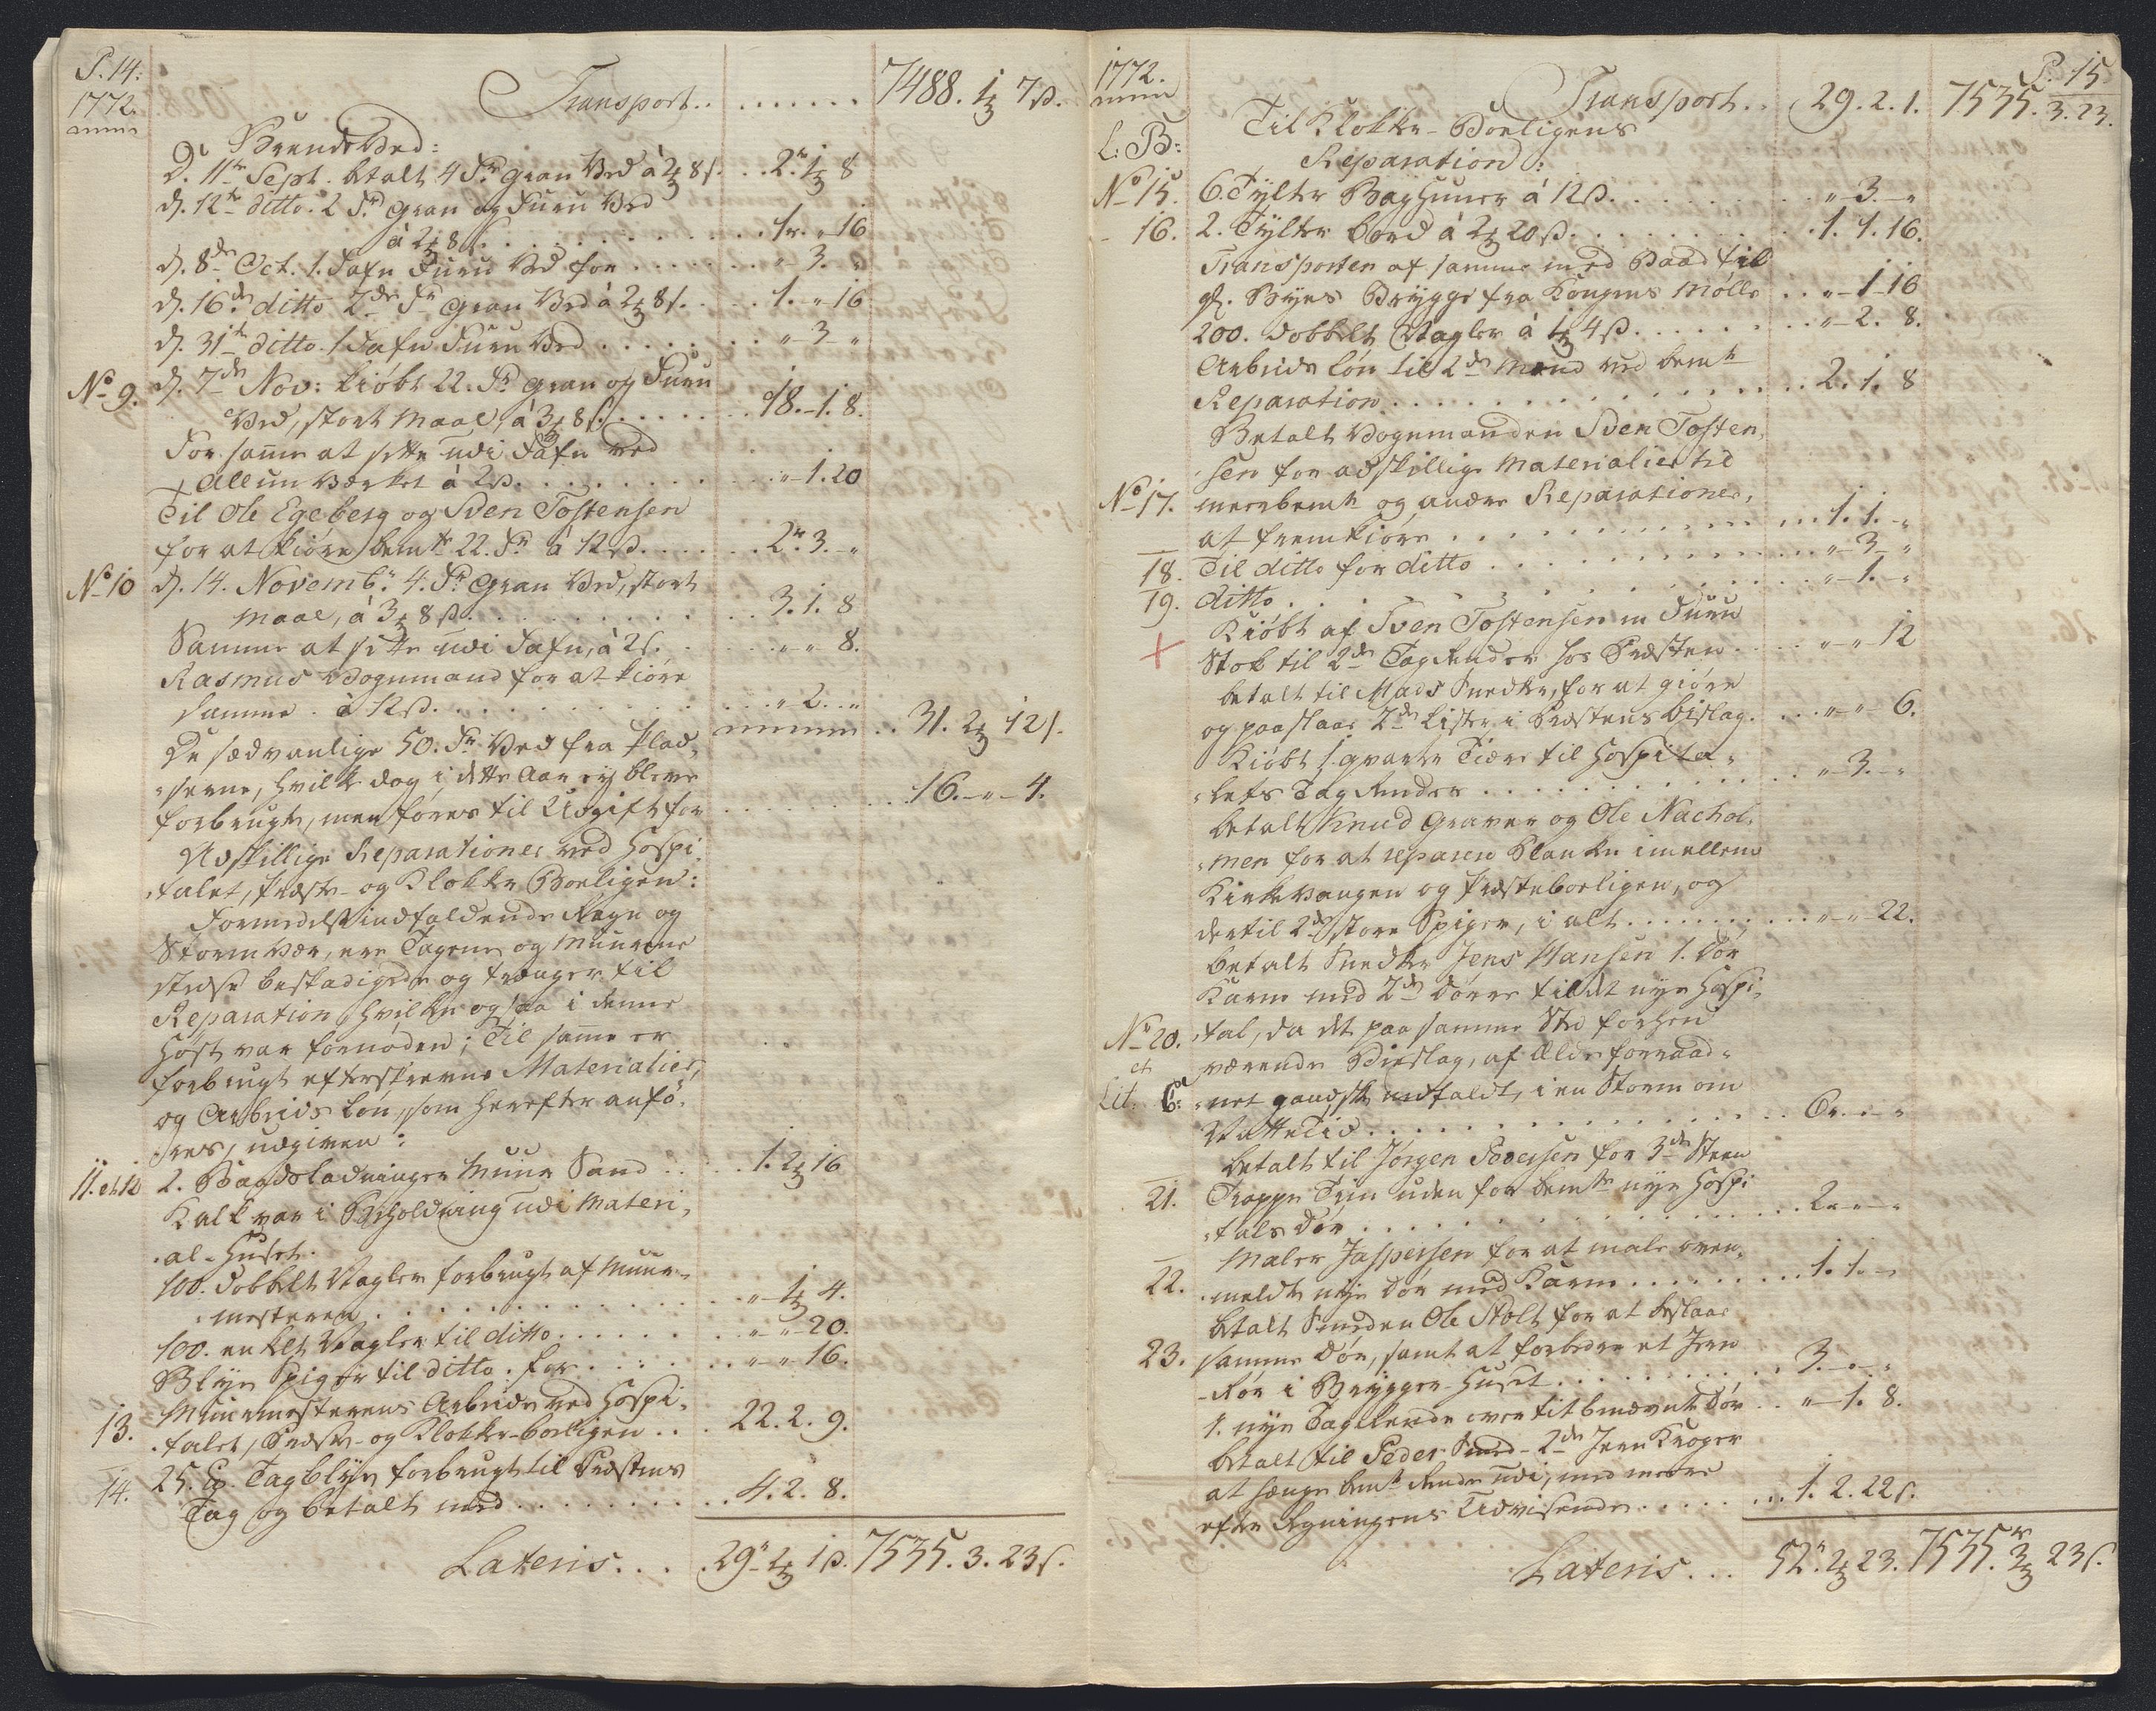 P. 14:
1772.
Transport. . . . . . . . 7488. 1 ₰ 7 ß.
Brende Ved:
D. 11te Sept. betalt 4 Fn Gran Ved à 2 ₰ 8 s. . . 2r. 1 ₰ 8
d. 12te ditto. 2 Fn Gran og Furu Ved
à 2 ₰ 8 s. . . . . . . . . 1r. „ 16
d. 8de Oct. 1. Fafn Furu Ved for . . . . . . „ 3. „
d. 16de ditto 2de Fn Gran Ved à 2 ₰ 8 s. . . 1. „ 16
d. 31te ditto. 1 Fafn Furu Ved . . . . . . „ 3 „
No 9. d. 7de Nov: kiöbt 22. Fn Gran og Furu
Ved, stort Maal, à 3 ₰ 8 s. . . . . . . 18. – 1. 8.
For samme at sette udi Fafn ved
Allun Værket à 2 ß. . . . . . . . „ – 1. 20
Til Ole Egeberg og Sven Tostensen
for at kiöre bemte 22. Fn à 12 ß. . . . . 2r. 3. – „
No 10 d. 14. Novembr. 4. Fn Gran Ved, stort
Maal, à 3 ₰ 8 ß. . . . . . . . . 3. 1. 8
Samme at sette udi Fafn, à 2 s. . . . „ „ 8.
Rasmus Vognmand for at kiöre
samme . à 12 ß. . . . . . . . . . . „ 2. . „
. . 31. 2 ₰ 12 s.
De sædvanlige 50. Fn Ved fra Plad-
serne, hvilke dog i dette Aar ej bleve
forbrugte, men föres til Udgift for . . . . . . . 16. – „ – 4.
Adskillige Reparationer ved Hospi-
talet, Præste- og Klokker Boeligen:
Formedelst indfaldende Regn og
Storm Veir, ere Tagene og Muurene
stedse beskadigede og trænger til
Reparation, hvilke og saa i denne
Höst var fornöden; Til samme er
forbrugt efterskrevne Materialier,
og Arbeids lön, som herefter anfö-
res, udgiven:
11. et 12 2. Baadsladninger Muur Sand . . . . 1. 2 ₰ 16
Kalk var i Beholdning udi Materi-
al-Huset.
100. dobbelt Nagler forbrugt af Muur-
mesteren . . . . . . . . . . . . . „ – 1 ₰ 4.
100. enkelt Nagler til ditto . . . . . . . „ – „ – 20.
Blye Spiger til ditto . for . . . . . . „ – „ – 16.
13. Muurmesterens Arbeide ved Hospi-
talet, Præste- og Klokker-boeligen . . . 22. 2. 9.
14. 25. ℔. Tagblye forbrugt til Præstens
Tag og betalt med . . . . . . . . . 4. 2. 8.
Lateris. . . . 29r. 2 ₰ 1 ß. 7535. 3. 23 s.
1772.
P. 15
Transport. . 29. 2. 1. 7535. 3. 23.
L: B: Til Klokker-Boeligens
Reparation:
No 15. 6. Tylter Baghuner à 12 ß. . . . . . . . . „ – 3. – „
- 16. 2. Tylter bord à 2 ₰ 20 ß. . . . . . . . . . 1. 1. 16.
Transporten af samme med Baad til
gl. Byes Brygge fra Kongens Mölle . . „ – 1 – 16
200. dobbelt Nagler à 1 ₰ 4 ß. . . . . . . . „ – 2. 8.
Arbeids lön til 2de Mænd ved bemte
Reparation . . . . . . . . . . . . . . . . 2. 1. 8
Betalt Vognmanden Sven Tosten-
sen for adskillige Materialier til
No 17. meerbemte og andre Reparationer,
at fremkiöre . . . . . . . . . . . . . . 1. 1. – „
18. Til ditto for ditto . . . . . . . . . . . . „ – 3 – „
19. ditto . . . . . . . . . . . . . . . „ – 1. – „
Kiöbt af Sven Tostensen en Furu
+ Stok til 2de Tag Render hos Præsten . . . . „ – „ 12
betalt til Mads Snedker, for at giöre
og paaslaae 2de Lister i Præstens bislag. . . . „ – „ – 6.
Kiöbt 1. qvarter Tiære til Hospita-
lets Tag Render . . . . . . . . . . . . „ – 3. – „
betalt Knud Graver og Ole Nachol-
men for at reparere Planken imellem
Kirkevangen og Præsteboeligen, og
dertil 2de store Spiger, i alt . . . . . . . . . „ – „ – 22.
betalt Snedker Jens Hansen 1. Dör
Karm med 2de Dörre til det nye Hospi-
No 20. tal, da det paa samme Sted forhen
et værende Bieslag, af Ælde forraad-
Lit: C: net gandske nedfaldt, i en Storm om
Natte Tid . . . . . . . . . . . . . . . . 6r. . – „
betalt til Jörgen Siversen for 3de Steen
21. Trappe Trin uden for bemte nye Hospi-
tals Dör . . . . . . . . . . . . . . . . 2 – „ – „
Maler Jaspersen for at male oven-
22. meldte nye Dör med Karm . . . . . . . . . 1. 1. –
betalt Smeden Ole Stolt for at beslaae
23. samme Dör, samt at forbedre et Jern
Rör i Brygger-Huset . . . . . . . . . . 3. – . – „
1. nye Tagrende over titbenævnte Dör . . „ – 1. 8.
betalt til Peder Smed - 2de Jern Kroger
at hænge bemte Rende udi, med mere
efter Regningens Udvisende . . . . . . . . 1. 2. 22 s.
Lateris. . . 52r. 2 ₰ 23. 7535r. 3 ₰ 23 s.